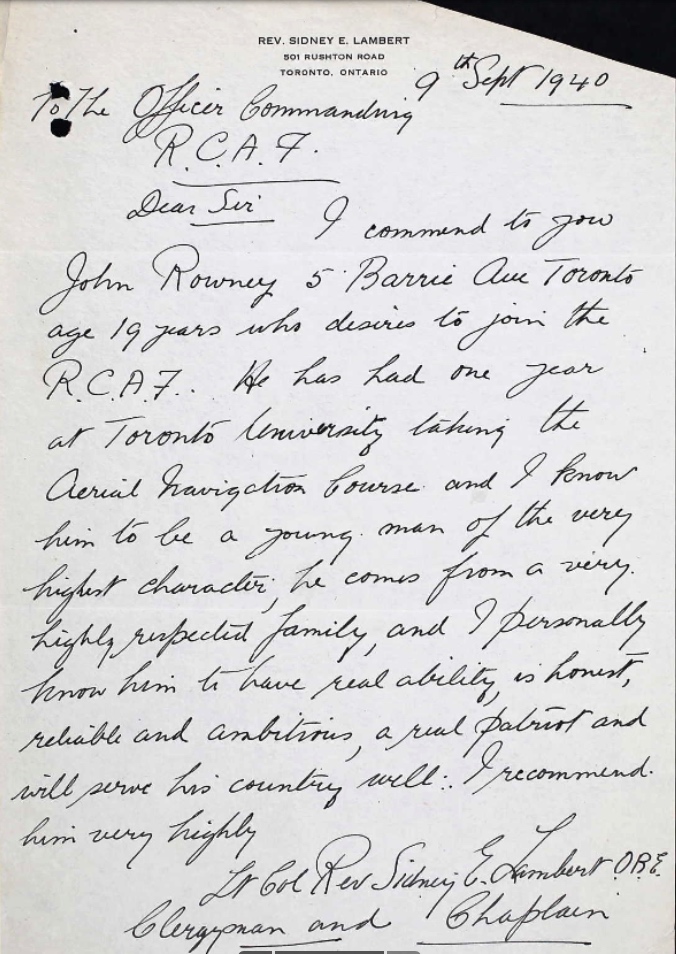 REV. SIDNEY E. LAMBERT
501 RUSHTON ROAD
TORONTO, ONTARIO
9th Sept 1940
To The Officer Commanding
R.C.A.F.
Dear Sir
I commend to you
John Rowney 5 Barrie Ave Toronto
age 19 years who desires to join the
R.C.A.F.. He has had one year
at Toronto University taking the
Aerial Navigation Course and I know
him to be a young man of the very
highest character, he comes from a very
highly respected family, and I personally
know him to have real ability, is honest,
reliable and ambitious, a real patriot and
will serve his country well. I recommend
him very highly
Lt Col Rev Sidney E. Lambert O.B.E.
Clergyman and Chaplain